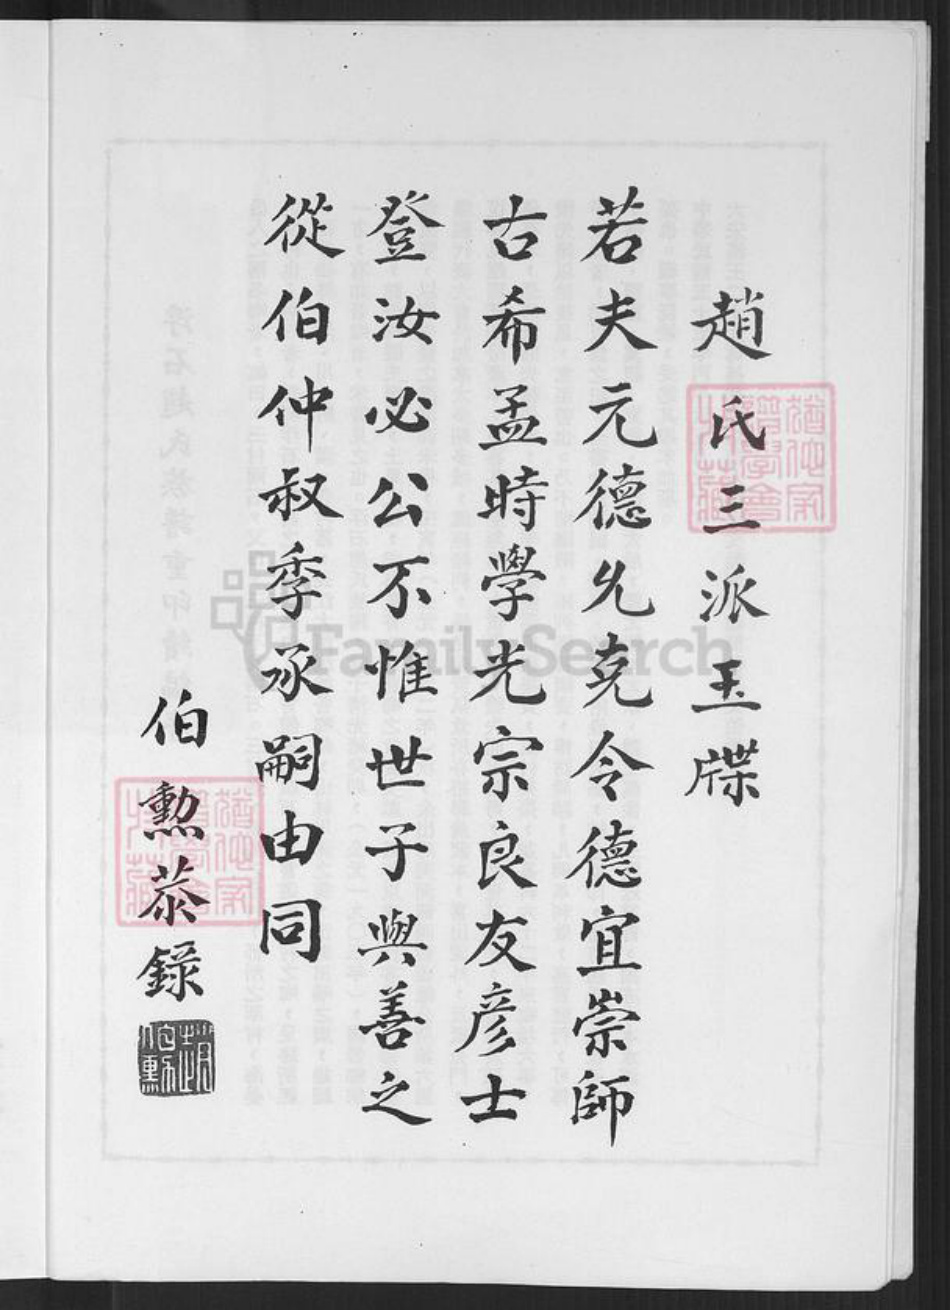 趙氏三派玉牒
若夫元德允克令德宜崇師
古希孟時學光宗良友彥士
登汝必公不惟世子與善之
從伯仲叔季承嗣由同
伯勳恭錄
趙伯勳
FamilySearch